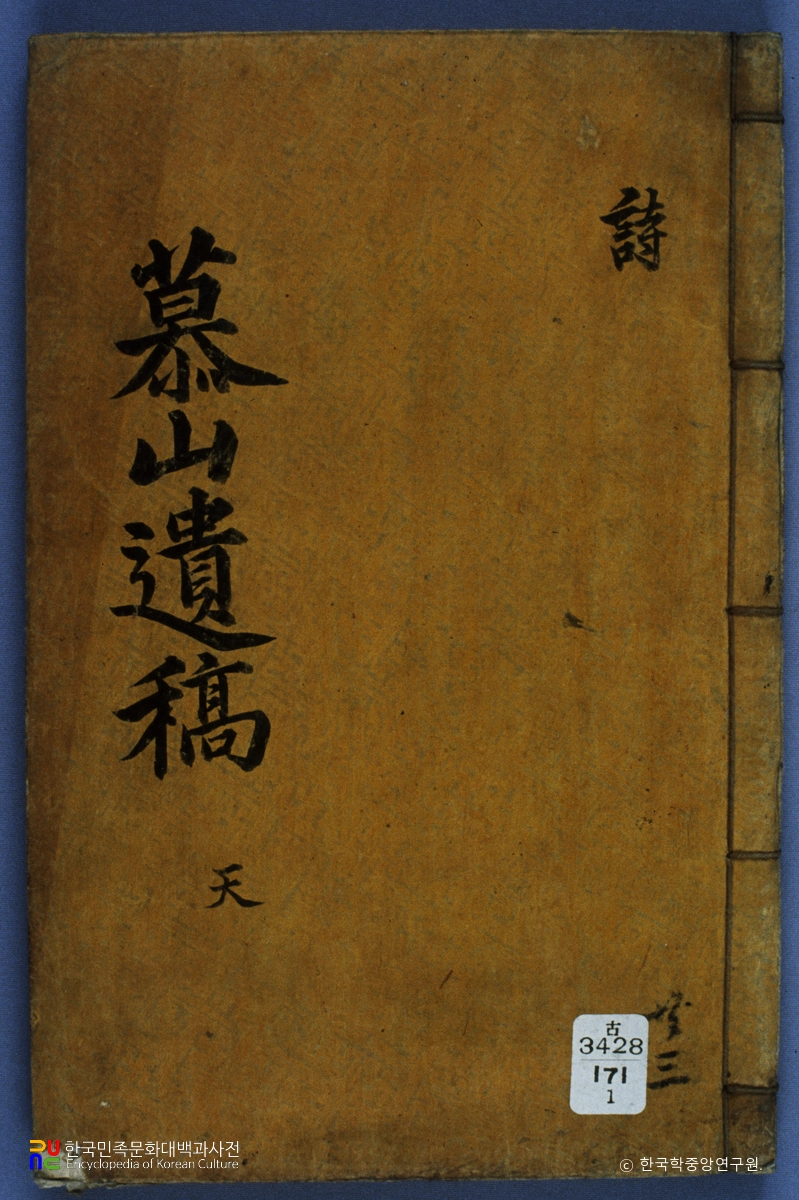 詩
慕山遺稿
天
共三
古
3428
171
1
한국민족문화대백과사전
Encyclopedia of Korean Culture
© 한국학중앙연구원.